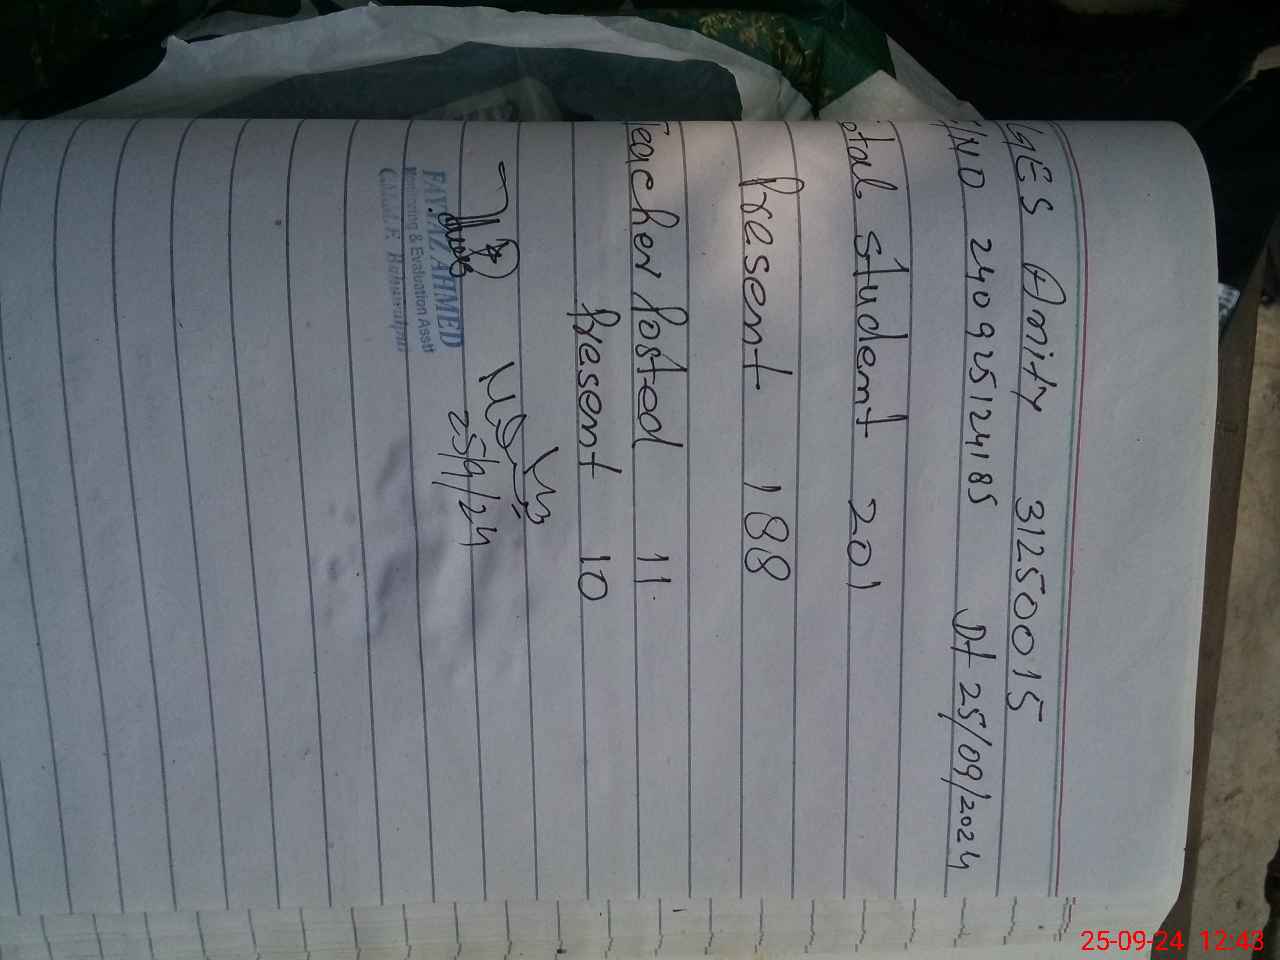 GES Amity 31250015
/NO 240925124185 Dt 25/09/2024
otal student 201
Present 188
Teacher Posted 11
Present 10
25/9/24
FAYYAZ AHMED
Monitoring & Evaluation Asstt
25-09-24 12:43